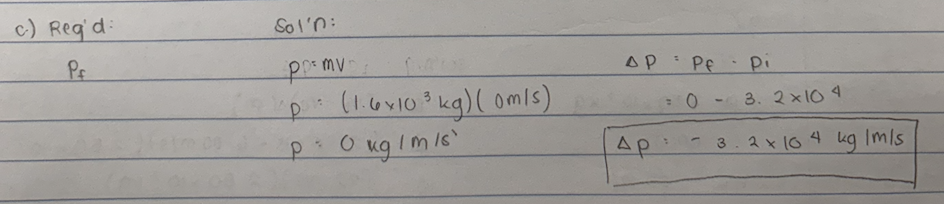 c.) Req'd:
Pf
Sol'n:
p = mv
p = (1.6x10³ kg)(0m/s)
p = 0 kg/m/s
ΔP = Pf - Pi
= 0 - 3.2x10⁴
Δp = - 3.2 x 10⁴ kg/m/s